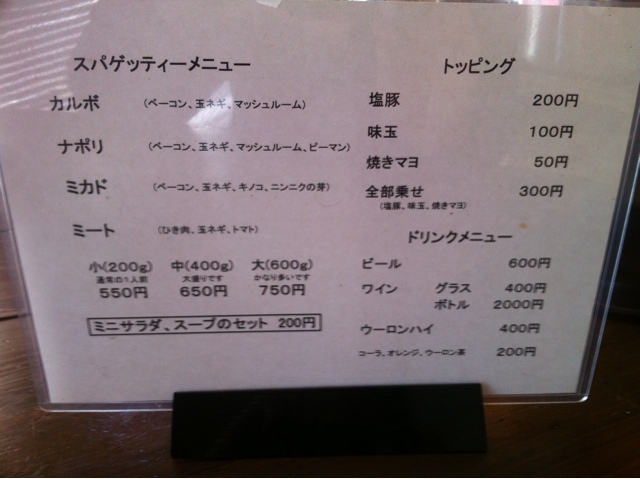 スパゲッティーメニュー
カルボ (ベーコン、玉ネギ、マッシュルーム)
ナポリ (ベーコン、玉ネギ、マッシュルーム、ピーマン)
ミカド (ベーコン、玉ネギ、キノコ、ニンニクの芽)
ミート (ひき肉、玉ネギ、トマト)
小(200g) 中(400g) 大(600g)
通常の1人前 大盛りです かなり多いです
550円 650円 750円
ミニサラダ、スープのセット 200円
トッピング
塩豚 200円
味玉 100円
焼きマヨ 50円
全部乗せ 300円
(塩豚、味玉、焼きマヨ)
ドリンクメニュー
ビール 600円
ワイン グラス 400円
ボトル 2000円
ウーロンハイ 400円
コーラ、オレンジ、ウーロン茶 200円